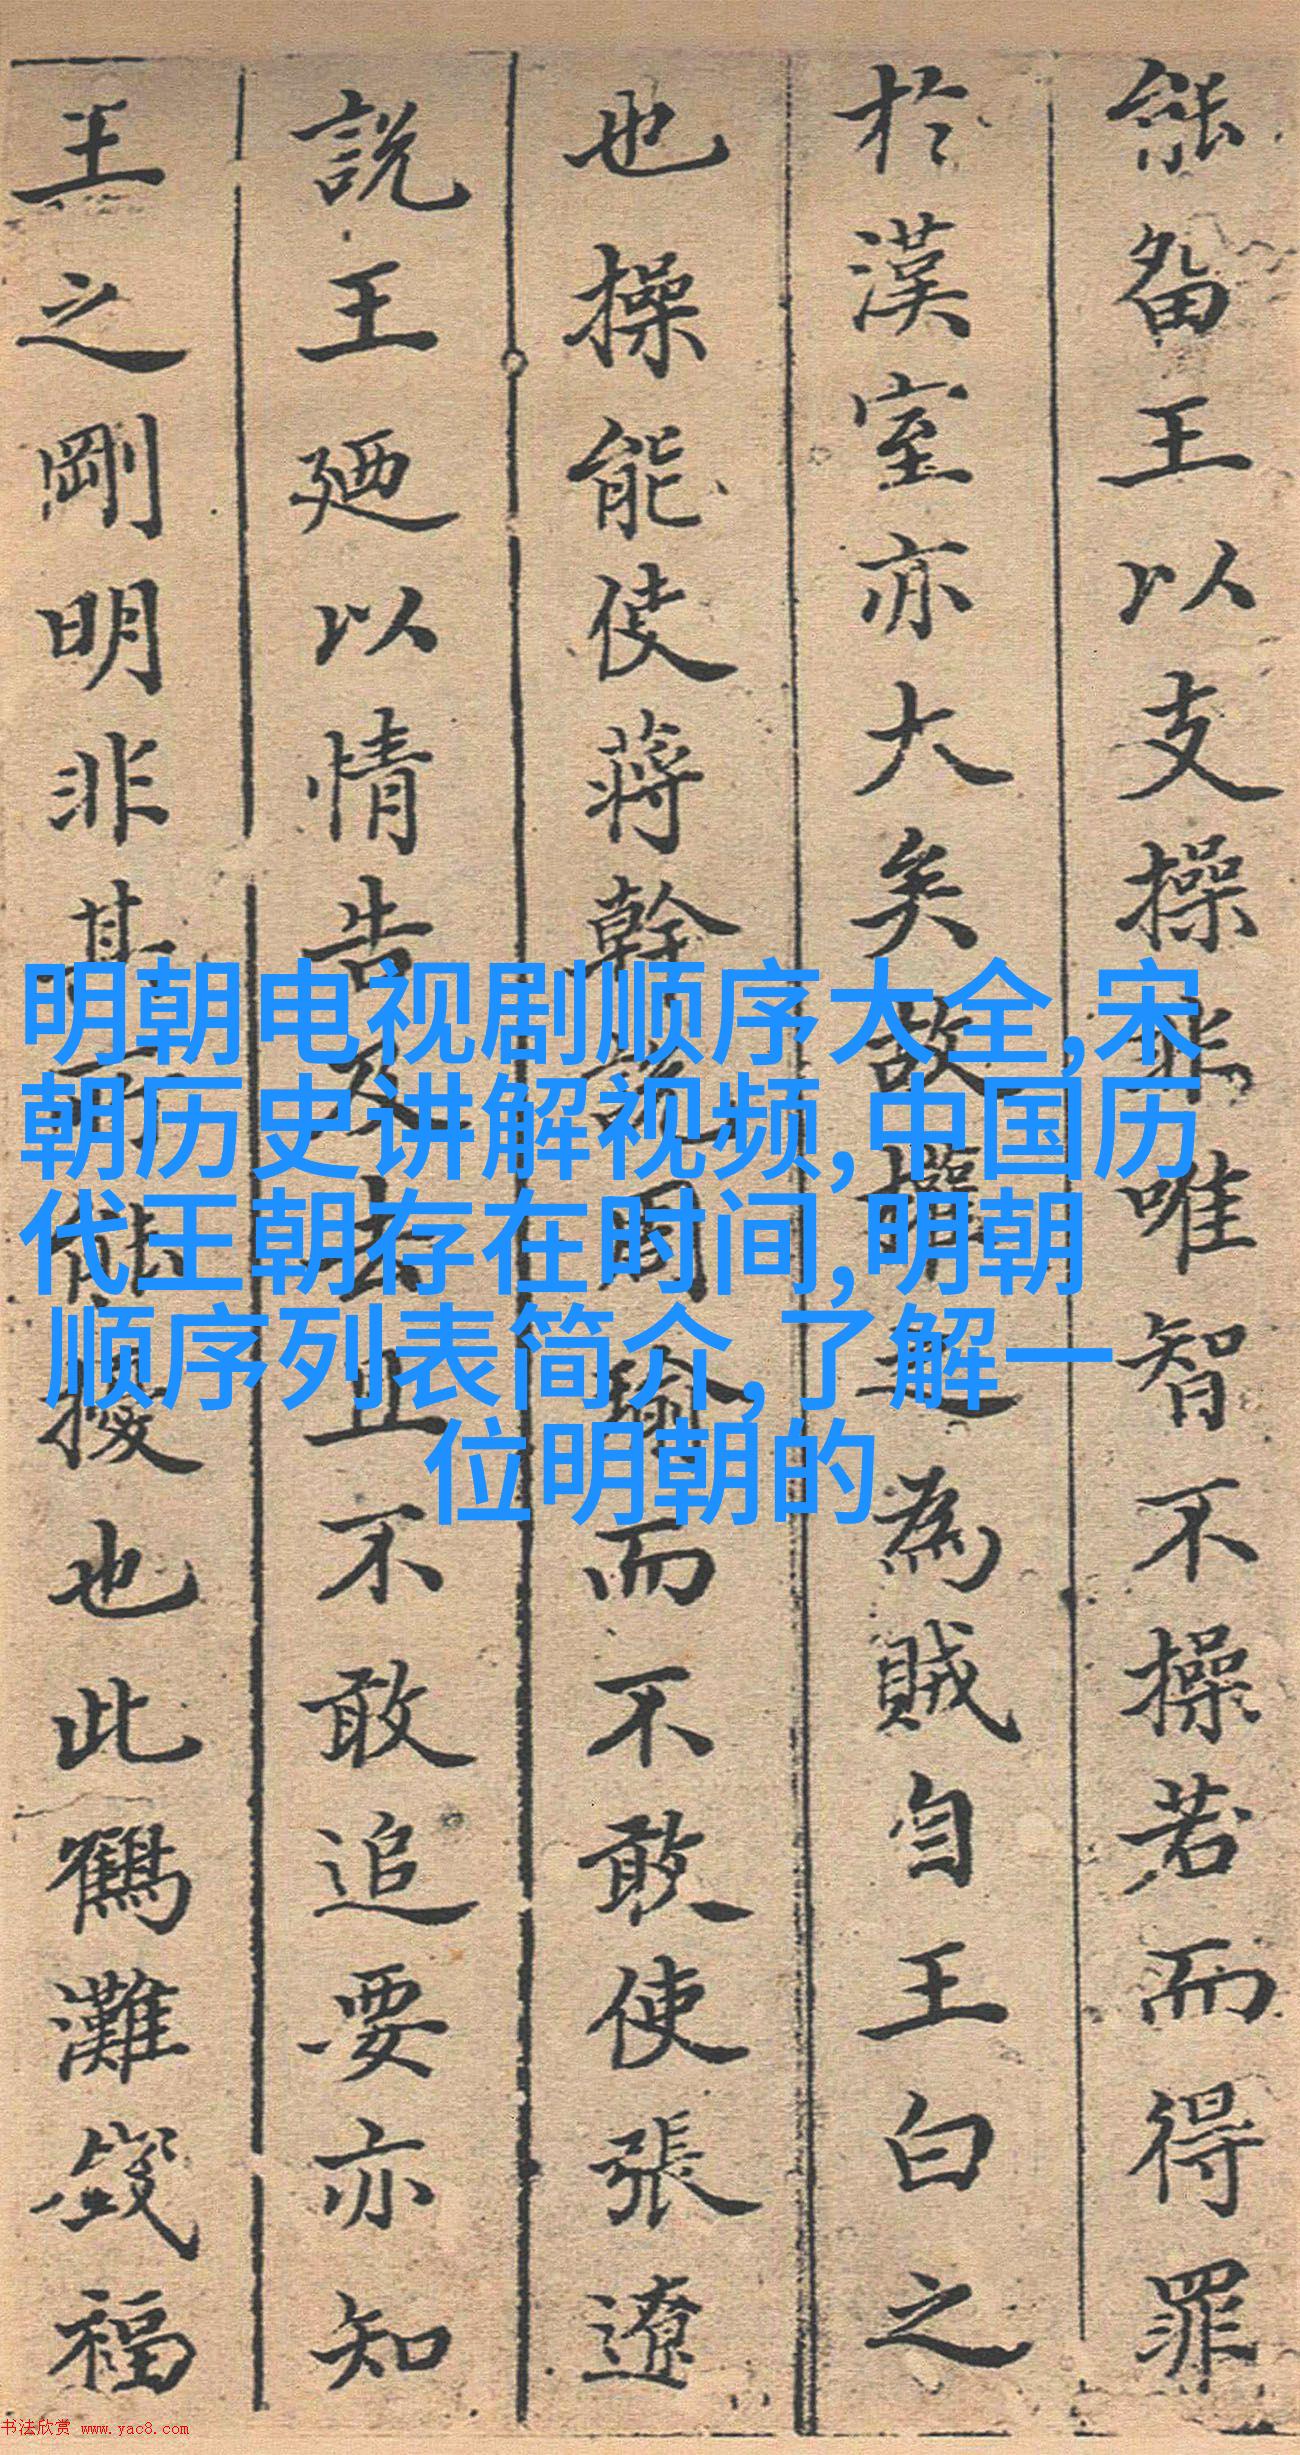 能畱王以支操非唯智不操若而得罪
於漢室亦大矣故操之為賊自王白之
也操能使蔣幹說周瑜而不敢使張遼
說王廼以情告及去且不敢追要亦知
王之剛明非其所能擾也此鶴灘錢福
明朝电视剧顺序大全,宋
朝历史讲解视频,中国历
代王朝存在时间,明朝
顺序列表简介,了解一
位明朝的
书法欣赏 www.yac8.com